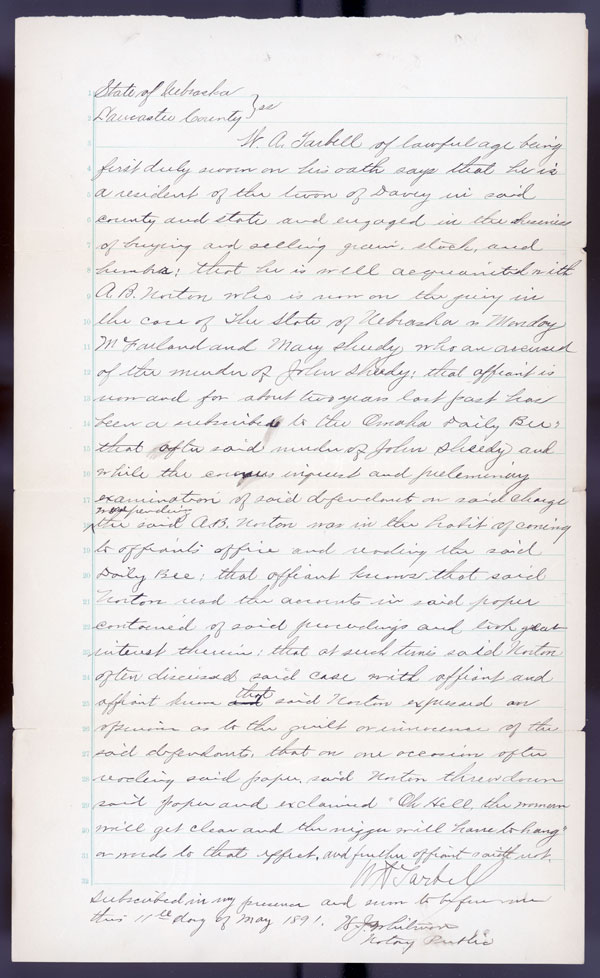 State of Nebraska
Lancaster County } ss
W. A. Tarbell of lawful age being
first duly sworn on his oath says that he is
a resident of the town of Davey in said
county and state and engaged in the business
of buying and selling grain, stock, and
lumber; that he is well acquainted with
A. B. Norton who is now on the jury in
the case of The State of Nebraska vs Monday
McFarland and Mary Sheedy who are accused
of the murder of John Sheedy; that affiant is
now and for about two years last past has
been a subscriber to the Omaha Daily Bee;
that after said murder of John Sheedy and
while the inquest and preliminary
examination of said defendants on said charge
was pending
the said A. B. Norton was in the habit of coming
to affiants office and reading the said
Daily Bee; that affiant knows that said
Norton read the accounts in said paper
contained of said proceedings and took great
interest therein; that at such time said Norton
often discussed said case with affiant and
that
affiant knew said Norton expressed an
opinion as to the guilt or innocence of the
said defendants, that on one occasion after
reading said paper, said Norton threw down
said paper and exclaimed "Oh Hell, the woman
will get clear and the nigger will have to hang"
or words to that effect, and further affiant saith not.
W A Tarbell
Subscribed in my presence and sworn to before me
this 11th day of May 1891. W. J. Whitmore
Notary Public